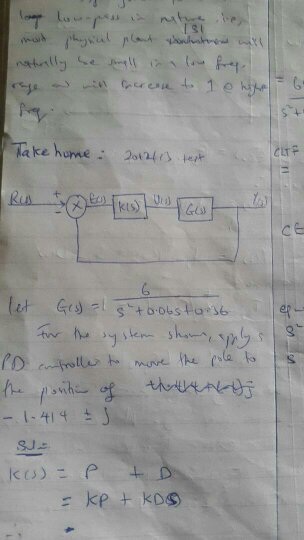 low-pass in nature i.e,
most physical plant |S| will
naturally be small in a low freq.
range and will increase to 1 @ higher
freq.
Take home: 2012/13 test
R(s) + - X E(s) K(s) U(s) G(s) Y(s)
let G(s) = 6
s² + 0.06s + 0.36
For the system shown, apply
PD controller to move the pole to
the position of
-1.414 ± j
Sol=
K(s) = P + D
= KP + KDS
6
s² +
CLTF
=
CE
eqn
s²
s